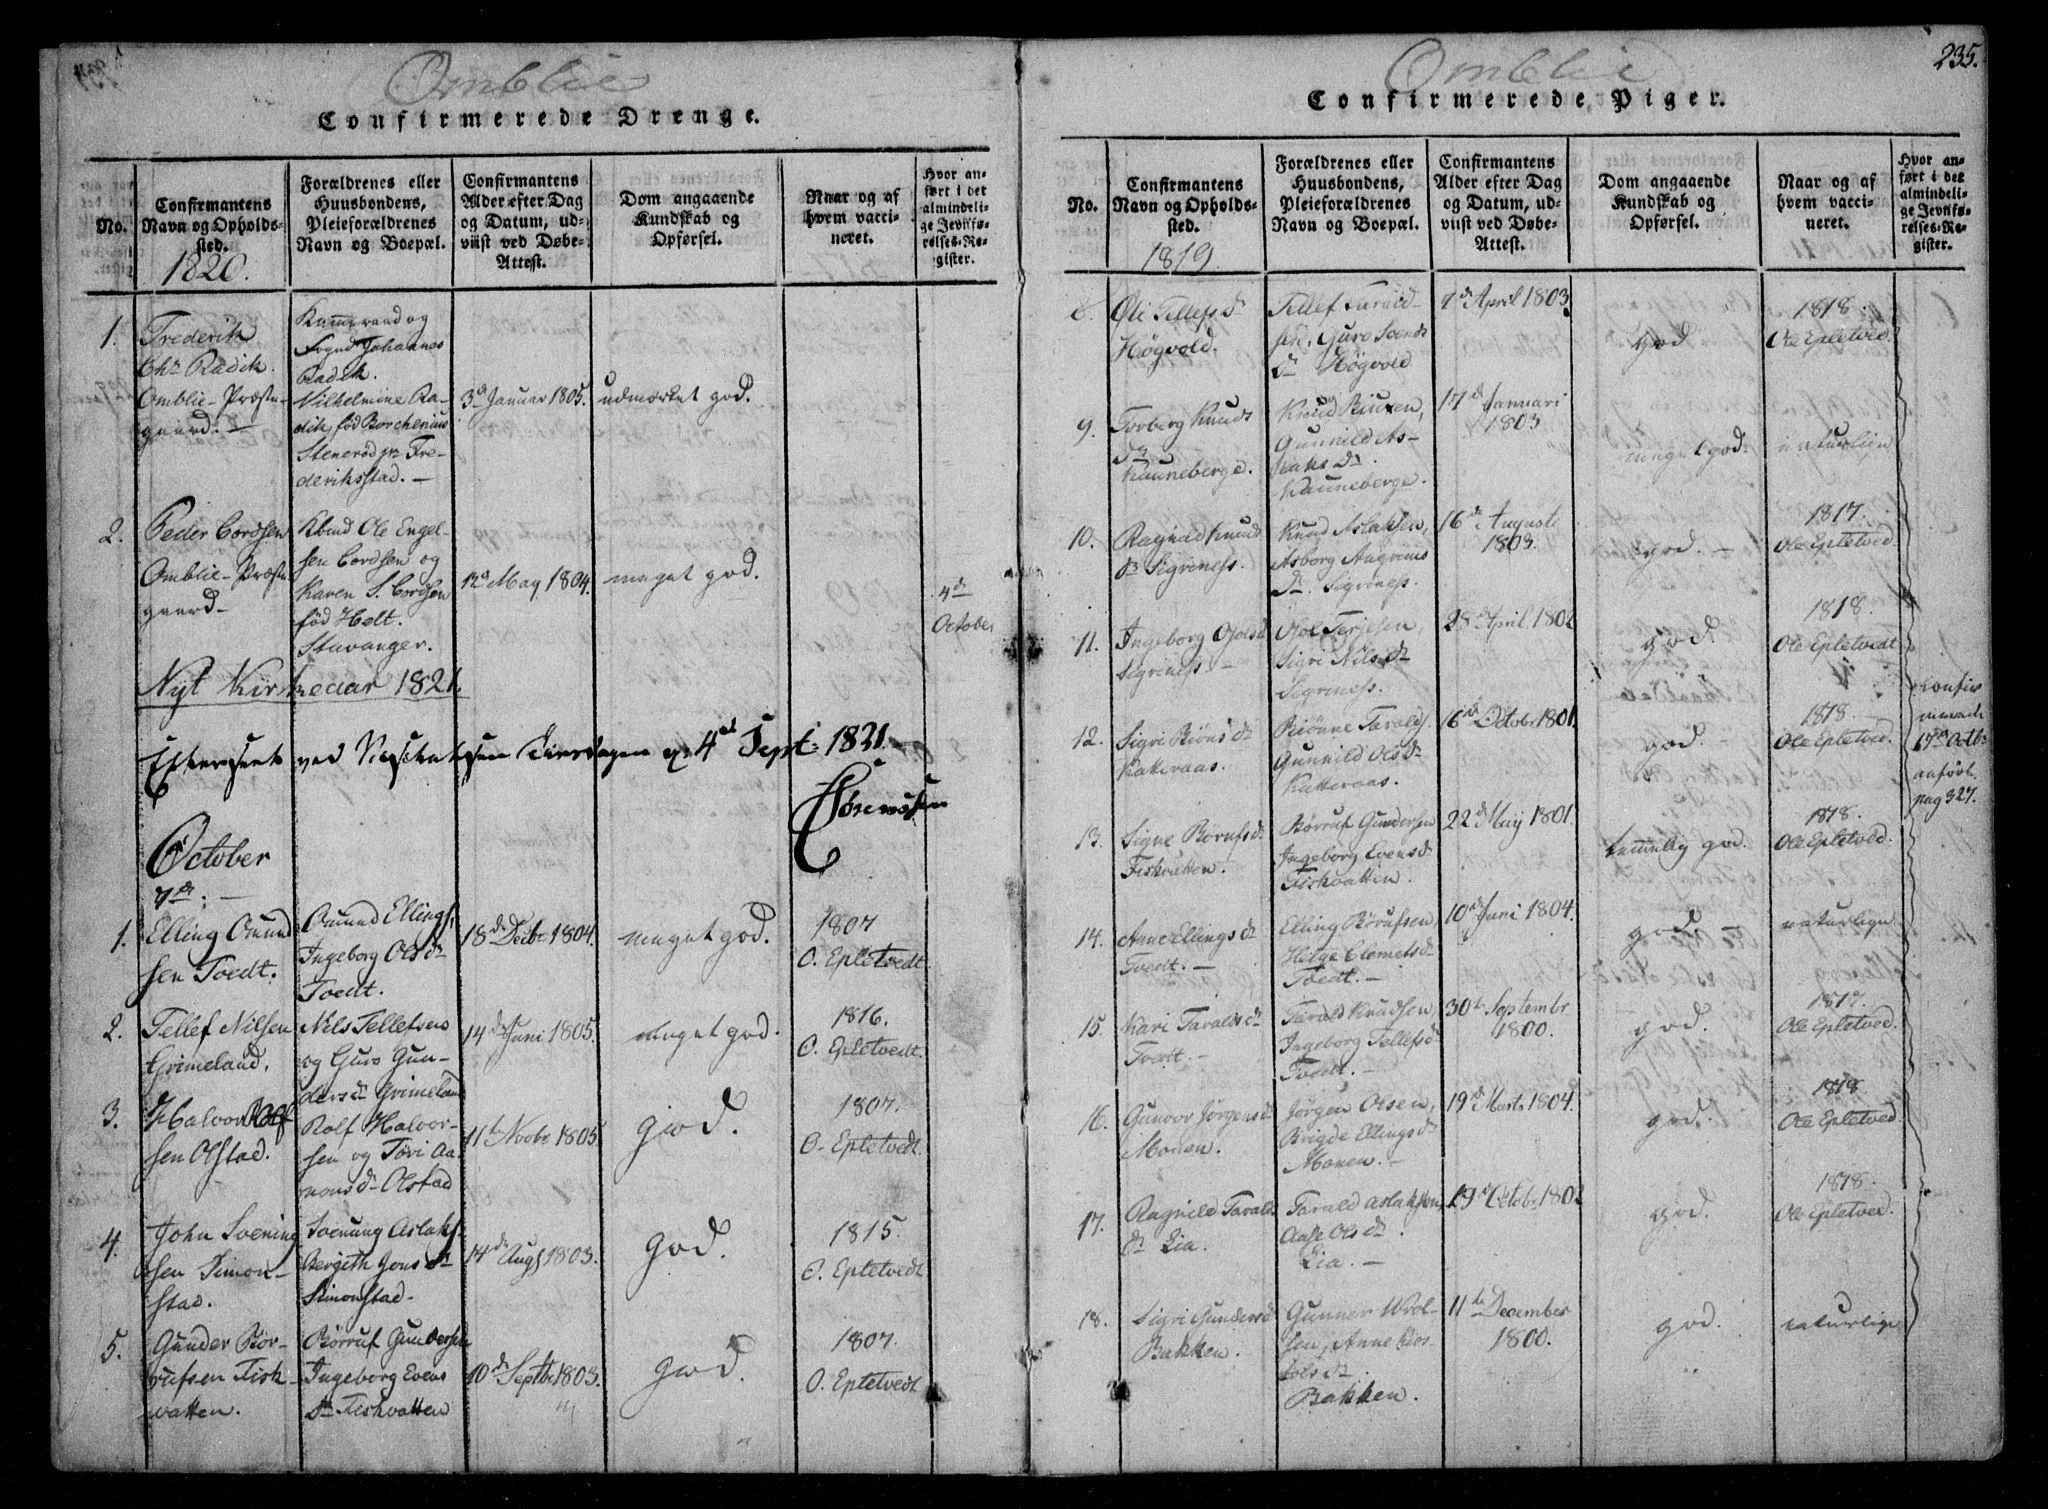 Omblie
Confirmerede Drenge.
No.
Confirmantens
Navn og Opholds-
sted.
1820.
Forældrenes eller
Huusbondens,
Pleieforældrenes
Navn og Boepæl.
Confirmantens
Alder efter Dag
og Datum, ud-
viist ved Døbe-
Attest.
Dom angaaende
Kundskab og
Opførsel.
Naar og af
hvem vacci-
neret.
Hvor an-
ført i det
almindeli-
ge Jevnfø-
relses-Re-
gister.
1.
Frederik
Chr. Radik.
Omblie-Præste-
gaard. —
Kammeraad og
Fogud Johannes
Radik.
Vilhelmine Ra-
dik, fød Borchenius
Stenerød pr. Fre-
deriksstad. —
3d Januar 1805.
udmærket god.
2.
Peder Cordsen
Omblie-Præste
gaard-
Kbmd Ole Engel-
sen Cordsen og
Karen S. Cordsen
fød Hedt.
Stavanger.
12d May 1804.
meget god.
4de
October
Nyt Kirkeaar 1821.
Efterseet ved Visitatsen Tirsdagen d. 4de Sept: 1821.
Sørenssen
October
7de. —
1.
Elling Omund
sen Tvedt.
Omund Ellings.
Ingeborg Olsdr
Tvedt.
18de Decbr 1804.
meget god.
1807
O. Epletvedt
2.
Tellef Nilsen
Grimeland.
Nils Tellefsens
og Guro Gun-
dersdr Grimeland
14de Juni 1805.
meget god.
1816.
O. Epletvedt.
3.
Halvor Rolf
sen Olstad.
Rolf Halvor-
sen og Tøri Aa-
nonsdr Olstad
11te Novbr 1805
god.
1807.
O. Epletvedt.
4.
John Svening
sen Simon-
stad.
Svenung Aslaks.
Bergith Jons dr
Simonstad-
14de Aug 1803.
god.
1815.
O. Epletvedt
5.
Gunder Bør-
rufsen Fisk-
vatten.
Børruf Gundersen
Ingeborg Evens
dr Fiskvatten
10de Septbr 1803.
god.
1807.
O. Epletvedt
Omblie
235.
Confirmerede Piger.
No.
Confirmantens
Navn og Opholds-
sted.
1819.
Forældrenes eller
Huusbondens,
Pleieforældrenes
Navn og Boepæl.
Confirmantens
Alder efter Dag
og Datum, ud-
viist ved Døbe-
Attest.
Dom angaaende
Kundskab og
Opførsel.
Naar og af
hvem vacci-
neret.
Hvor an-
ført i det
almindeli-
ge Jevnfø-
relses-Re-
gister.
8.
Øli Tellefs dr
Høgvold.
Tellef Tarald-
sen, Guro Svends
dr Høgvold
7de April 1803.
god
1818.
Ole Epletved.
9.
Torberg Knuds
dr
Kauneberge.
Knud
Gunnild As-
laks dr.
Kauneberge.
17de Januari
1803
meget god.
naturlien
10.
Ragnild Knuds
dr Sigriness.
Knud Aslaksen,
Asborg Angrims
dr. Sigriness.
16de Augusti
1803.
god. —
1817.
Ole Epletved
11.
Ingeborg Ojolsd
Sigriness —
Ojol Terjesen,
Sigri Nils dr
Sigriness.
28de April 1802
god.
1818.
Ole Epletvedt
12.
Sigri Biøns dr
Katteraas.
Biønne Taralds.
Gunnild Ols dr
Katteraas.
16de Octobr 1801.
god.
1818.
Ole Epletved.
confir
merede
17de Octbr
anført
pag 327.
13.
Signe Børufsdr
Fiskvatten.
Børruf Gundersen
Ingeborg Evensdr
Fiskvatten.
22de Maij 1801.
temmelig god.
1818.
Ole Epletved.
14.
Anne Ellings dr
Tvedt. —
Elling Børufsen,
Helge Clemetsdr
Tvedt. —
10de Juni 1804.
god.
naturligen
15.
Kari Taralds dr
Tvedt. —
Tarald Knudsen,
Ingeborg Tellefsdr
Tvedt. —
30te Septembr
1800.
god.
1817.
Ole Epletved.
16.
Gunvor Jørgensd
Monen.
Jørgen Olsen,
Brigde Ellingsdr
Monen. —
19de Marts 1804.
god.
1818
Ole Epletved
17.
Ragnild Taralds
dr Lia.
Tarald Aslaksen,
Aase Ols dr.
Lia. —
29de Octobr 1802
god.
1818.
Ole Epletved.
18.
Sigri Gundersd
Bakken.
Gunner Wrol-
sen, Anne Kios-
tols dr
Bakken.
11te December
1800.
god.
naturlige